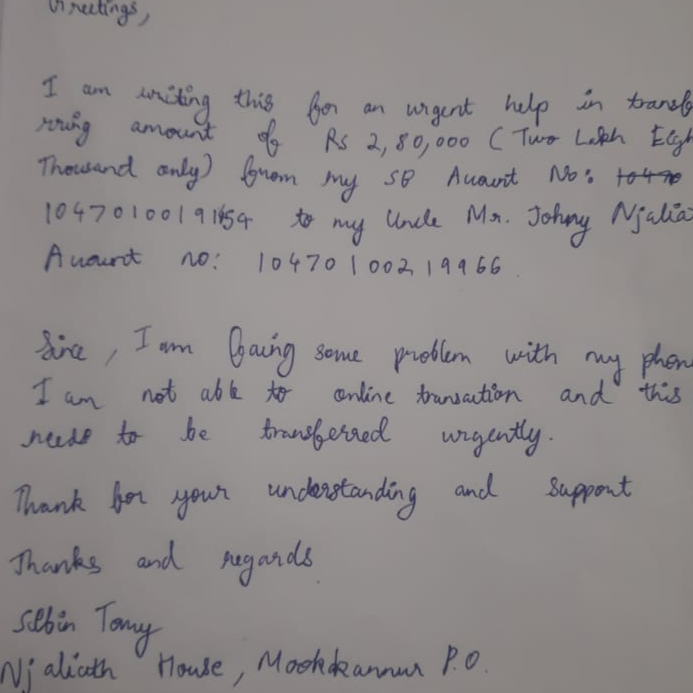 Greetings,
I am writing this for an urgent help in transf
rring amount of Rs 2,80,000 (Two Lakh Eigh
Thousand only) from my SB Account No:
to my Uncle Mr. Johny Njalia
Account no: 10470100219966
Since, I am facing some problem with my phon
I am not able to online transaction and this
needs to be transferred urgently.
Thank for your understanding and support
Thanks and regards
Tomy
Njaliath House, Mookkannur P.O.